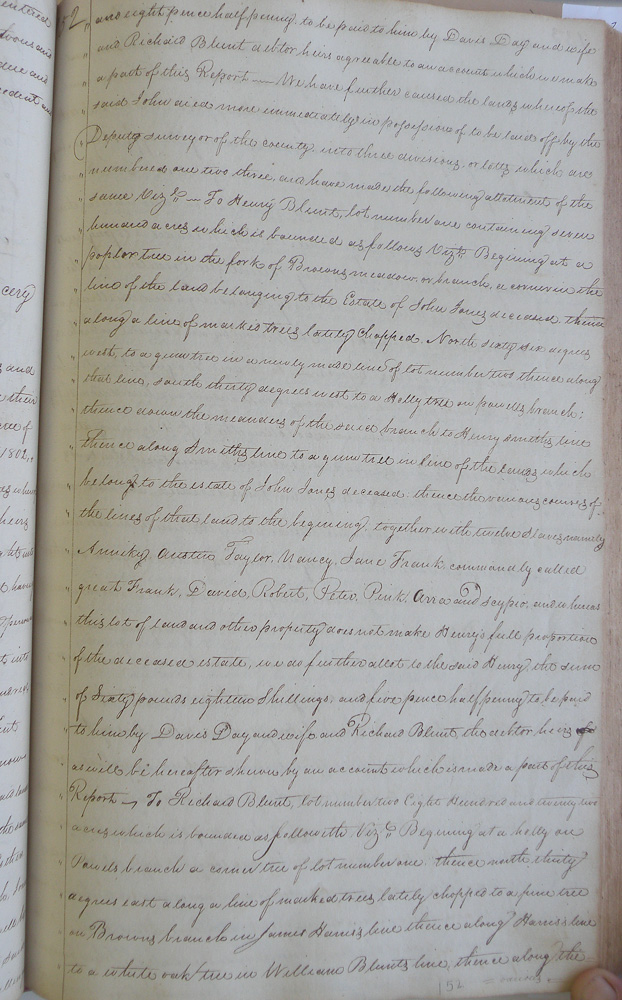 52 and eight pence half penny, to be paid to him by Davis Day and wife
and Richard Blunt debtor heirs agreeable to an account which we make
a part of this Report — We have further caused the lands whereof the
said John died more immediately in possession of to be laid off by the
Deputy surveyor of the county, into three divisions, or lotts, which are
numbered one two three, and have made the following allotment of the
same Vizt. — To Henry Blunt, lot number one containing seven
hundred acres which is bounded as follows Vizt. Begining at a
poplar tree in the fork of Browns meadow, or branch, a corner in the
line of the land belonging to the Estate of John Jones deceased, thence
along a line of marked trees lately chopped, North sixty six degrees
west, to a gum tree in a newly made line of lot number two thence along
that line, south thirty degrees west to a Holly tree on powells branch;
thence down the meanders of the said branch to Henry smiths line
thence along Smiths line to a gum tree in line of the lands which
belongs to the estate of John Jones deceased. thence the various courses of
the lines of that land to the begining, together with twelve slaves namely
Anniky, Austin Taylor, Nancy, Jane Frank commonly called
great Frank, David, Robert, Peter, Pink, Arra and Scypio, and whereas
this lot of land and other property does not make Henry's full proportion
of the deceased estate, we do further allot to the said Henry, the sum
of Sixty pounds eighteen Shillings, and five pence half penny to be paid
to him by Davis Day and wife and Richard Blunt, the debtor heirs
as will be hereafter shewn by an account which is made a part of this
Report — To Richard Blunt, lot number two Eight Hundred and twenty two
acres which is bounded as followith Vizt. Begining at a holly on
Powels branch a corner tree of lot number one thence north thirty
degrees east along a line of marked trees lately chopped to a pine tree
on Browns branch in James Harriss line thence along Harriss line
to a white oak tree in William Blunts line, thence along the
152